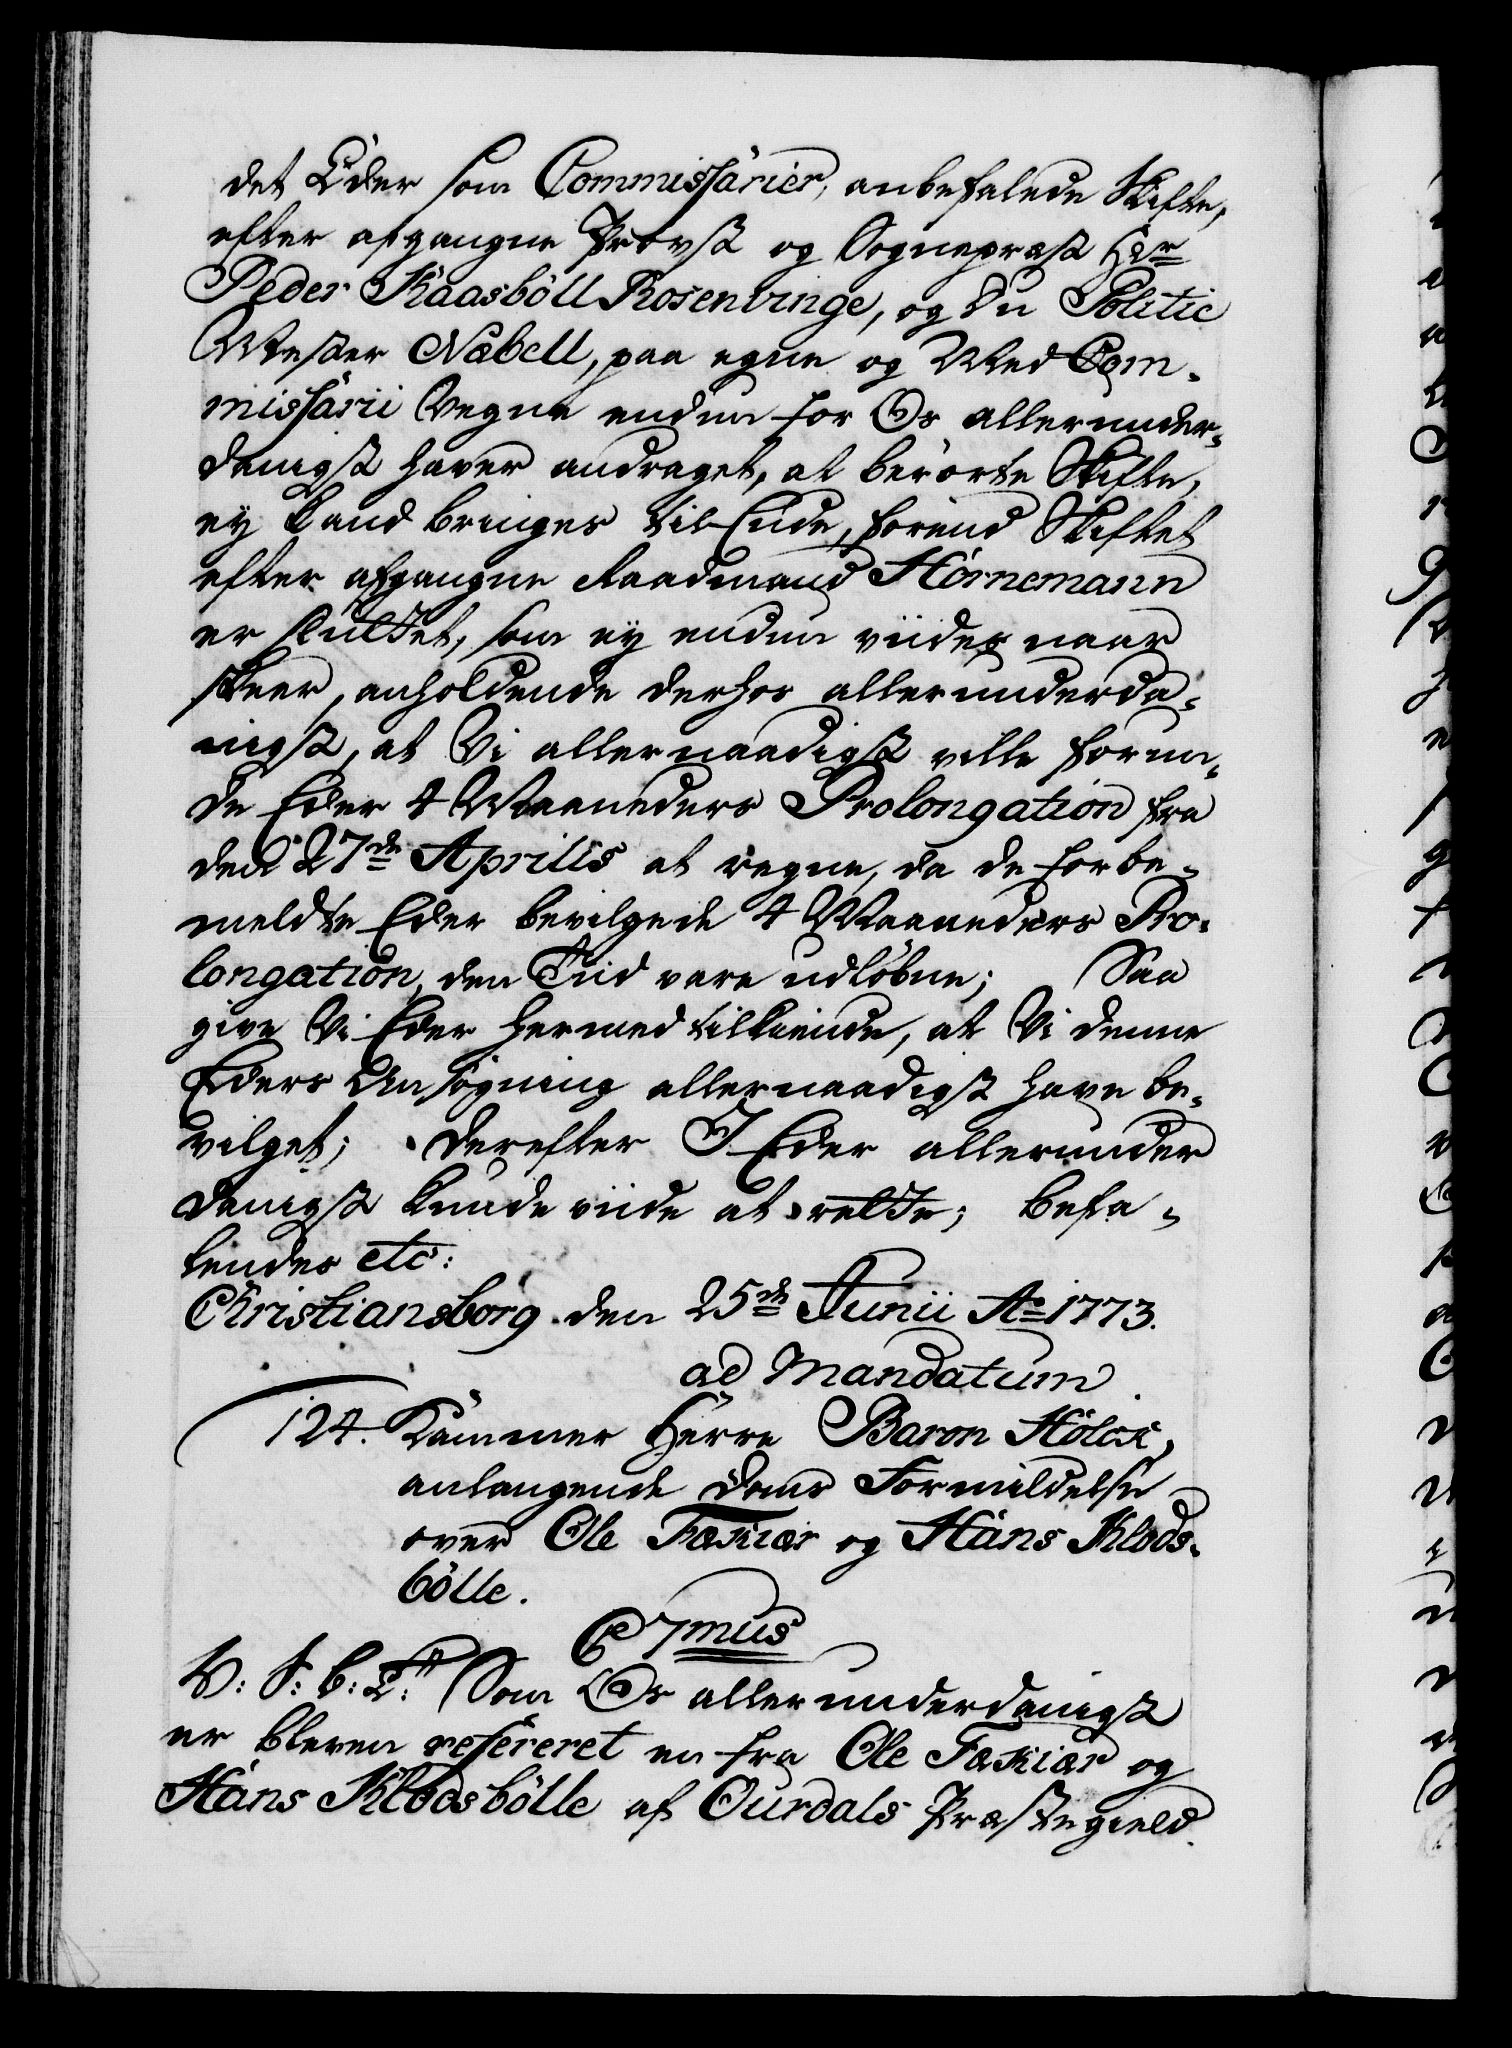 det Eder som Commissarier, anbefalede Skifte,
efter afgangne Provst og Sognepræst Hr
Peder Kaasböll Rosenvinge, og Du Politie
Mester Nabell, paa egne og Med Com-
missarii Vegne endnu for Os allerunder-
danigst haver andraget, at berörte Skifte,
ey kand bringes til Ende, forend Skiftet
efter afgangne Raadmand Hornemann
er sluttet, som ey endnu viides naar
skeer, anholdende derhos allerunderda-
nigst, at Vi allernaadigst ville forun-
de Eder 4 Maaneders Prolongation fra
den 27de Aprilis at regne, da de forbe-
meldte Eder bevilgede 4 Maaneders Pro-
longation, den Tiid vare udlöbne; Saa
give Vi Eder hermed tilkiende, at Vi denne
Eders Ansögning allernaadigst have be-
vilget; derefter I Eder allerunder
danigst kunde viide at rette; befa-
lendes etc:
Christiansborg den 25de Junii Ao 1773.
ad Mandatum.
124. Kammer Herre Baron Holck,
anlangende Doms Formildelse
over Ole Fækiær og Hans Klods-
bölle.
C 7mus
V: S: B: T: Som Os allerunderdanigst
er bleven refereret en fra Ole Fækiær og
Hans Klodsbölle af Ourdals Præstegield